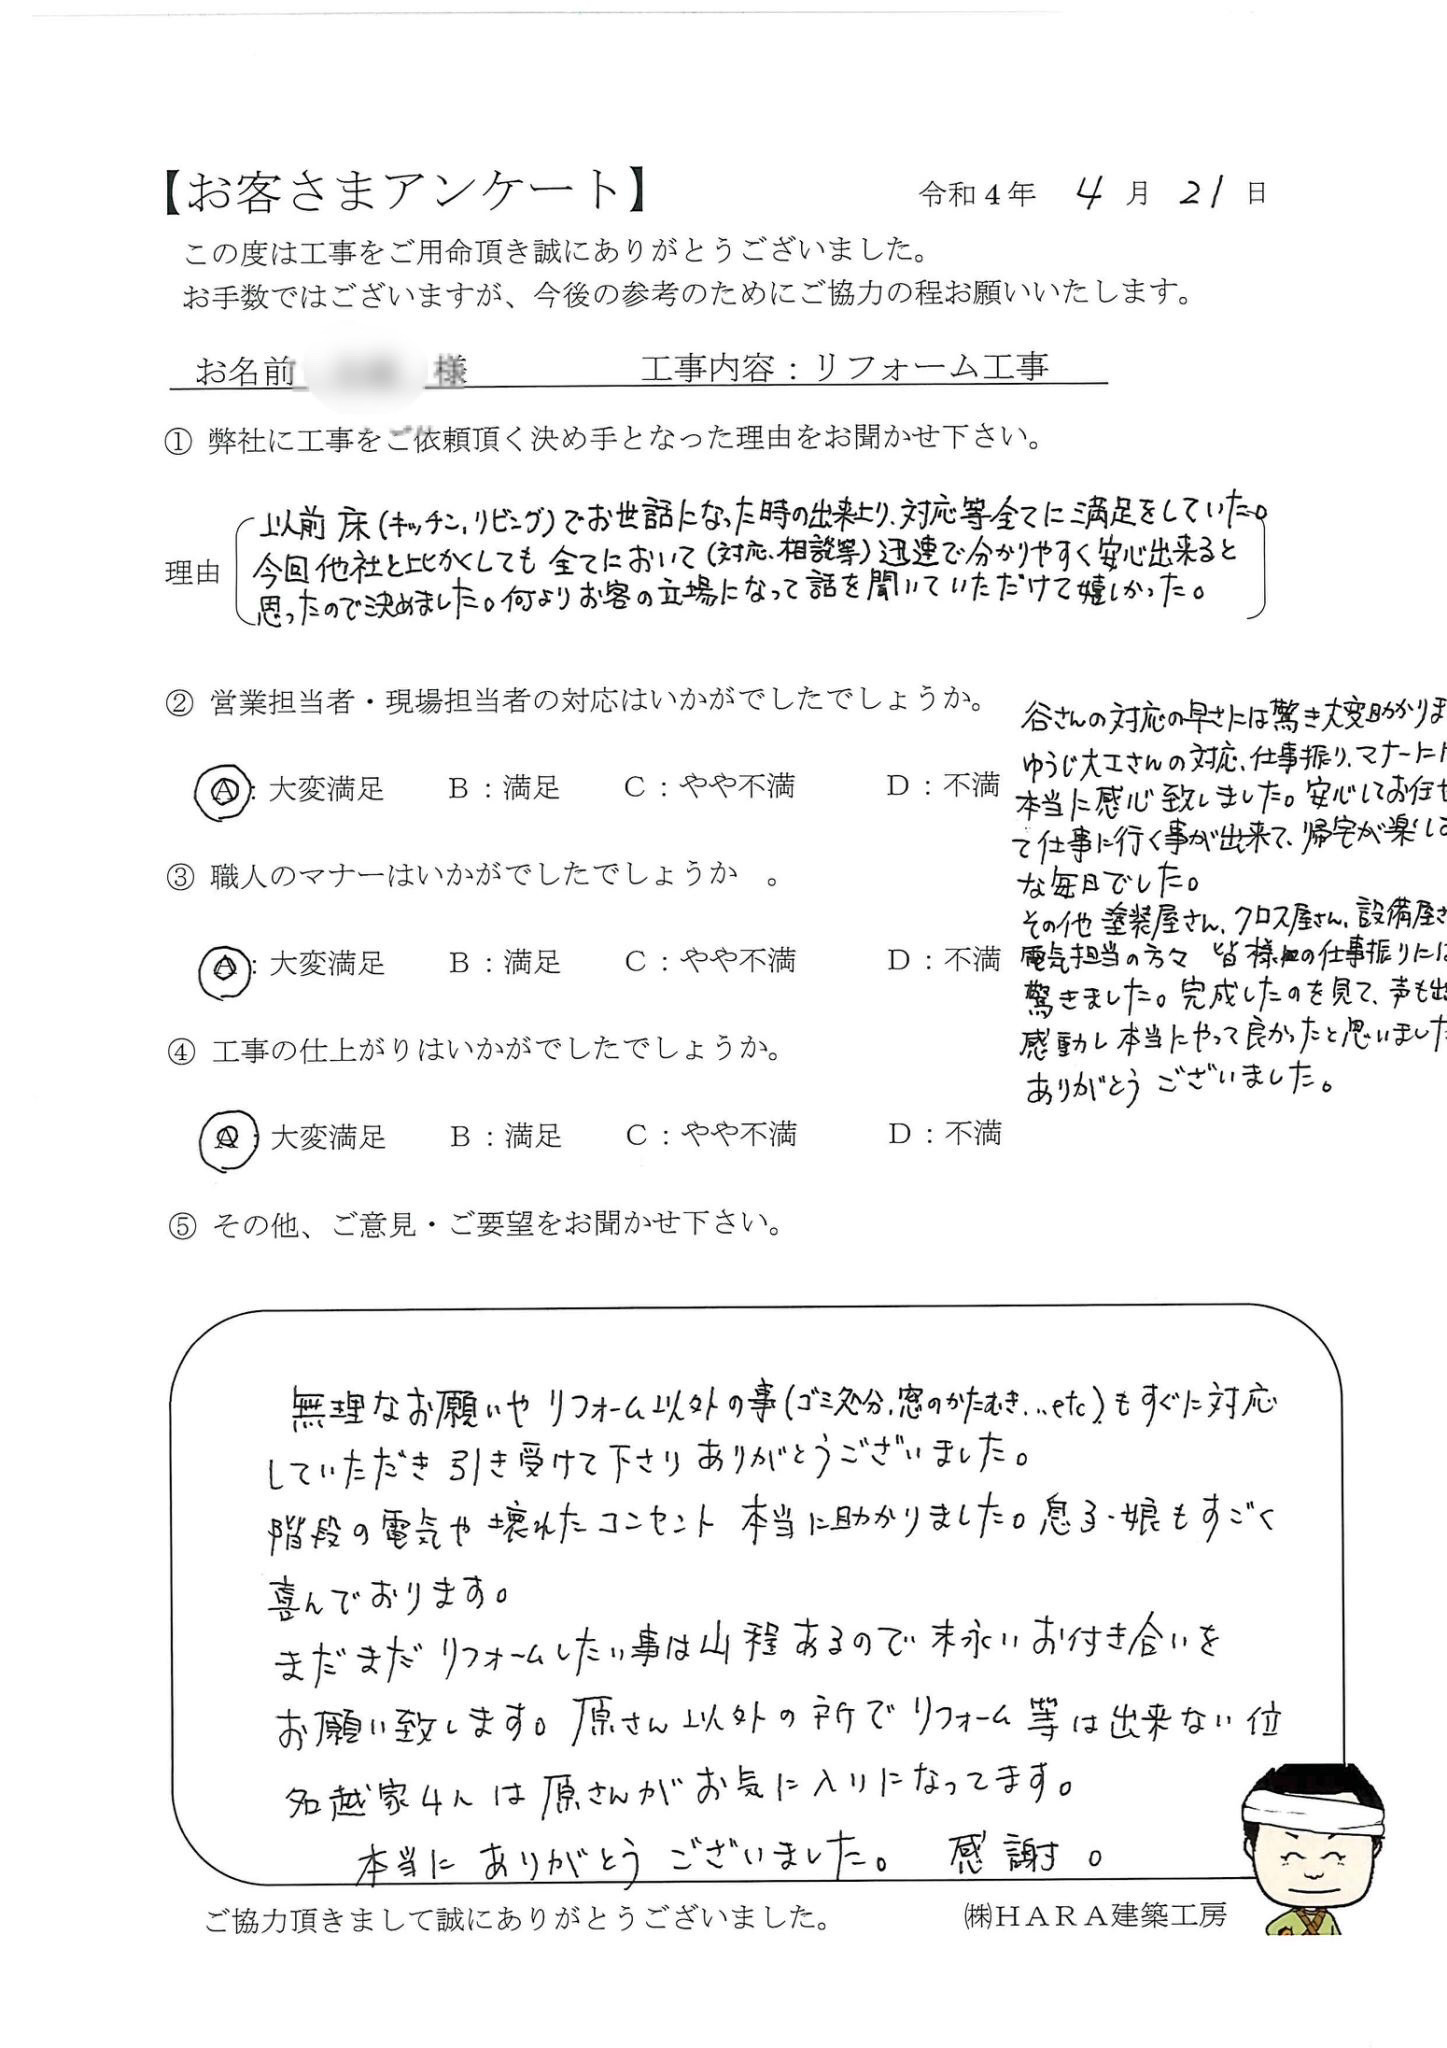 【お客さまアンケート】 令和4年 4月 21日
この度は工事をご用命頂き誠にありがとうございました。
お手数ではございますが、今後の参考のためにご協力の程お願いいたします。
お名前 様 工事内容：リフォーム工事
① 弊社に工事をご依頼頂く決め手となった理由をお聞かせ下さい。
理由
以前 床(キッチン,リビング)でお世話になった時の出来上り、対応等全てに満足をしていた。
今回他社と比かくしても 全てにおいて(対応、相談等)迅速で分かりやすく安心出来ると
思ったので決めました。何よりお客の立場になって話を聞いていただけて嬉しかった。
② 営業担当者・現場担当者の対応はいかがでしたでしょうか。
A：大変満足 B：満足 C：やや不満 D：不満
③ 職人のマナーはいかがでしたでしょうか 。
A：大変満足 B：満足 C：やや不満 D：不満
④ 工事の仕上がりはいかがでしたでしょうか。
A：大変満足 B：満足 C：やや不満 D：不満
谷さんの対応の早さには驚き大変助かりま
ゆうじ大工さんの対応、仕事振り、マナーに
本当に感心致しました。安心してお任せ
て仕事に行く事が出来て、帰宅が楽し
な毎日でした。
その他 塗装屋さん、クロス屋さん、設備屋さ
電気担当の方々 皆様の仕事振りには
驚きました。完成したのを見て、声も出
感動し本当にやって良かったと思いました
ありがとうございました。
⑤ その他、ご意見・ご要望をお聞かせ下さい。
無理なお願いや リフォーム以外の事(ゴミ処分、窓のかたむき…etc)もすぐに対応
していただき 引き受けて下さり ありがとうございました。
階段の電気や 壊れたコンセント 本当に助かりました。息子・娘もすごく
喜んでおります。
まだまだ リフォームしたい事は山程あるので 末永いお付き合いを
お願い致します。原さん以外の所で リフォーム等は出来ない位
名越家4人は 原さんがお気に入りになってます。
本当に ありがとう ございました。 感謝。
ご協力頂きまして誠にありがとうございました。 ㈱HARA建築工房